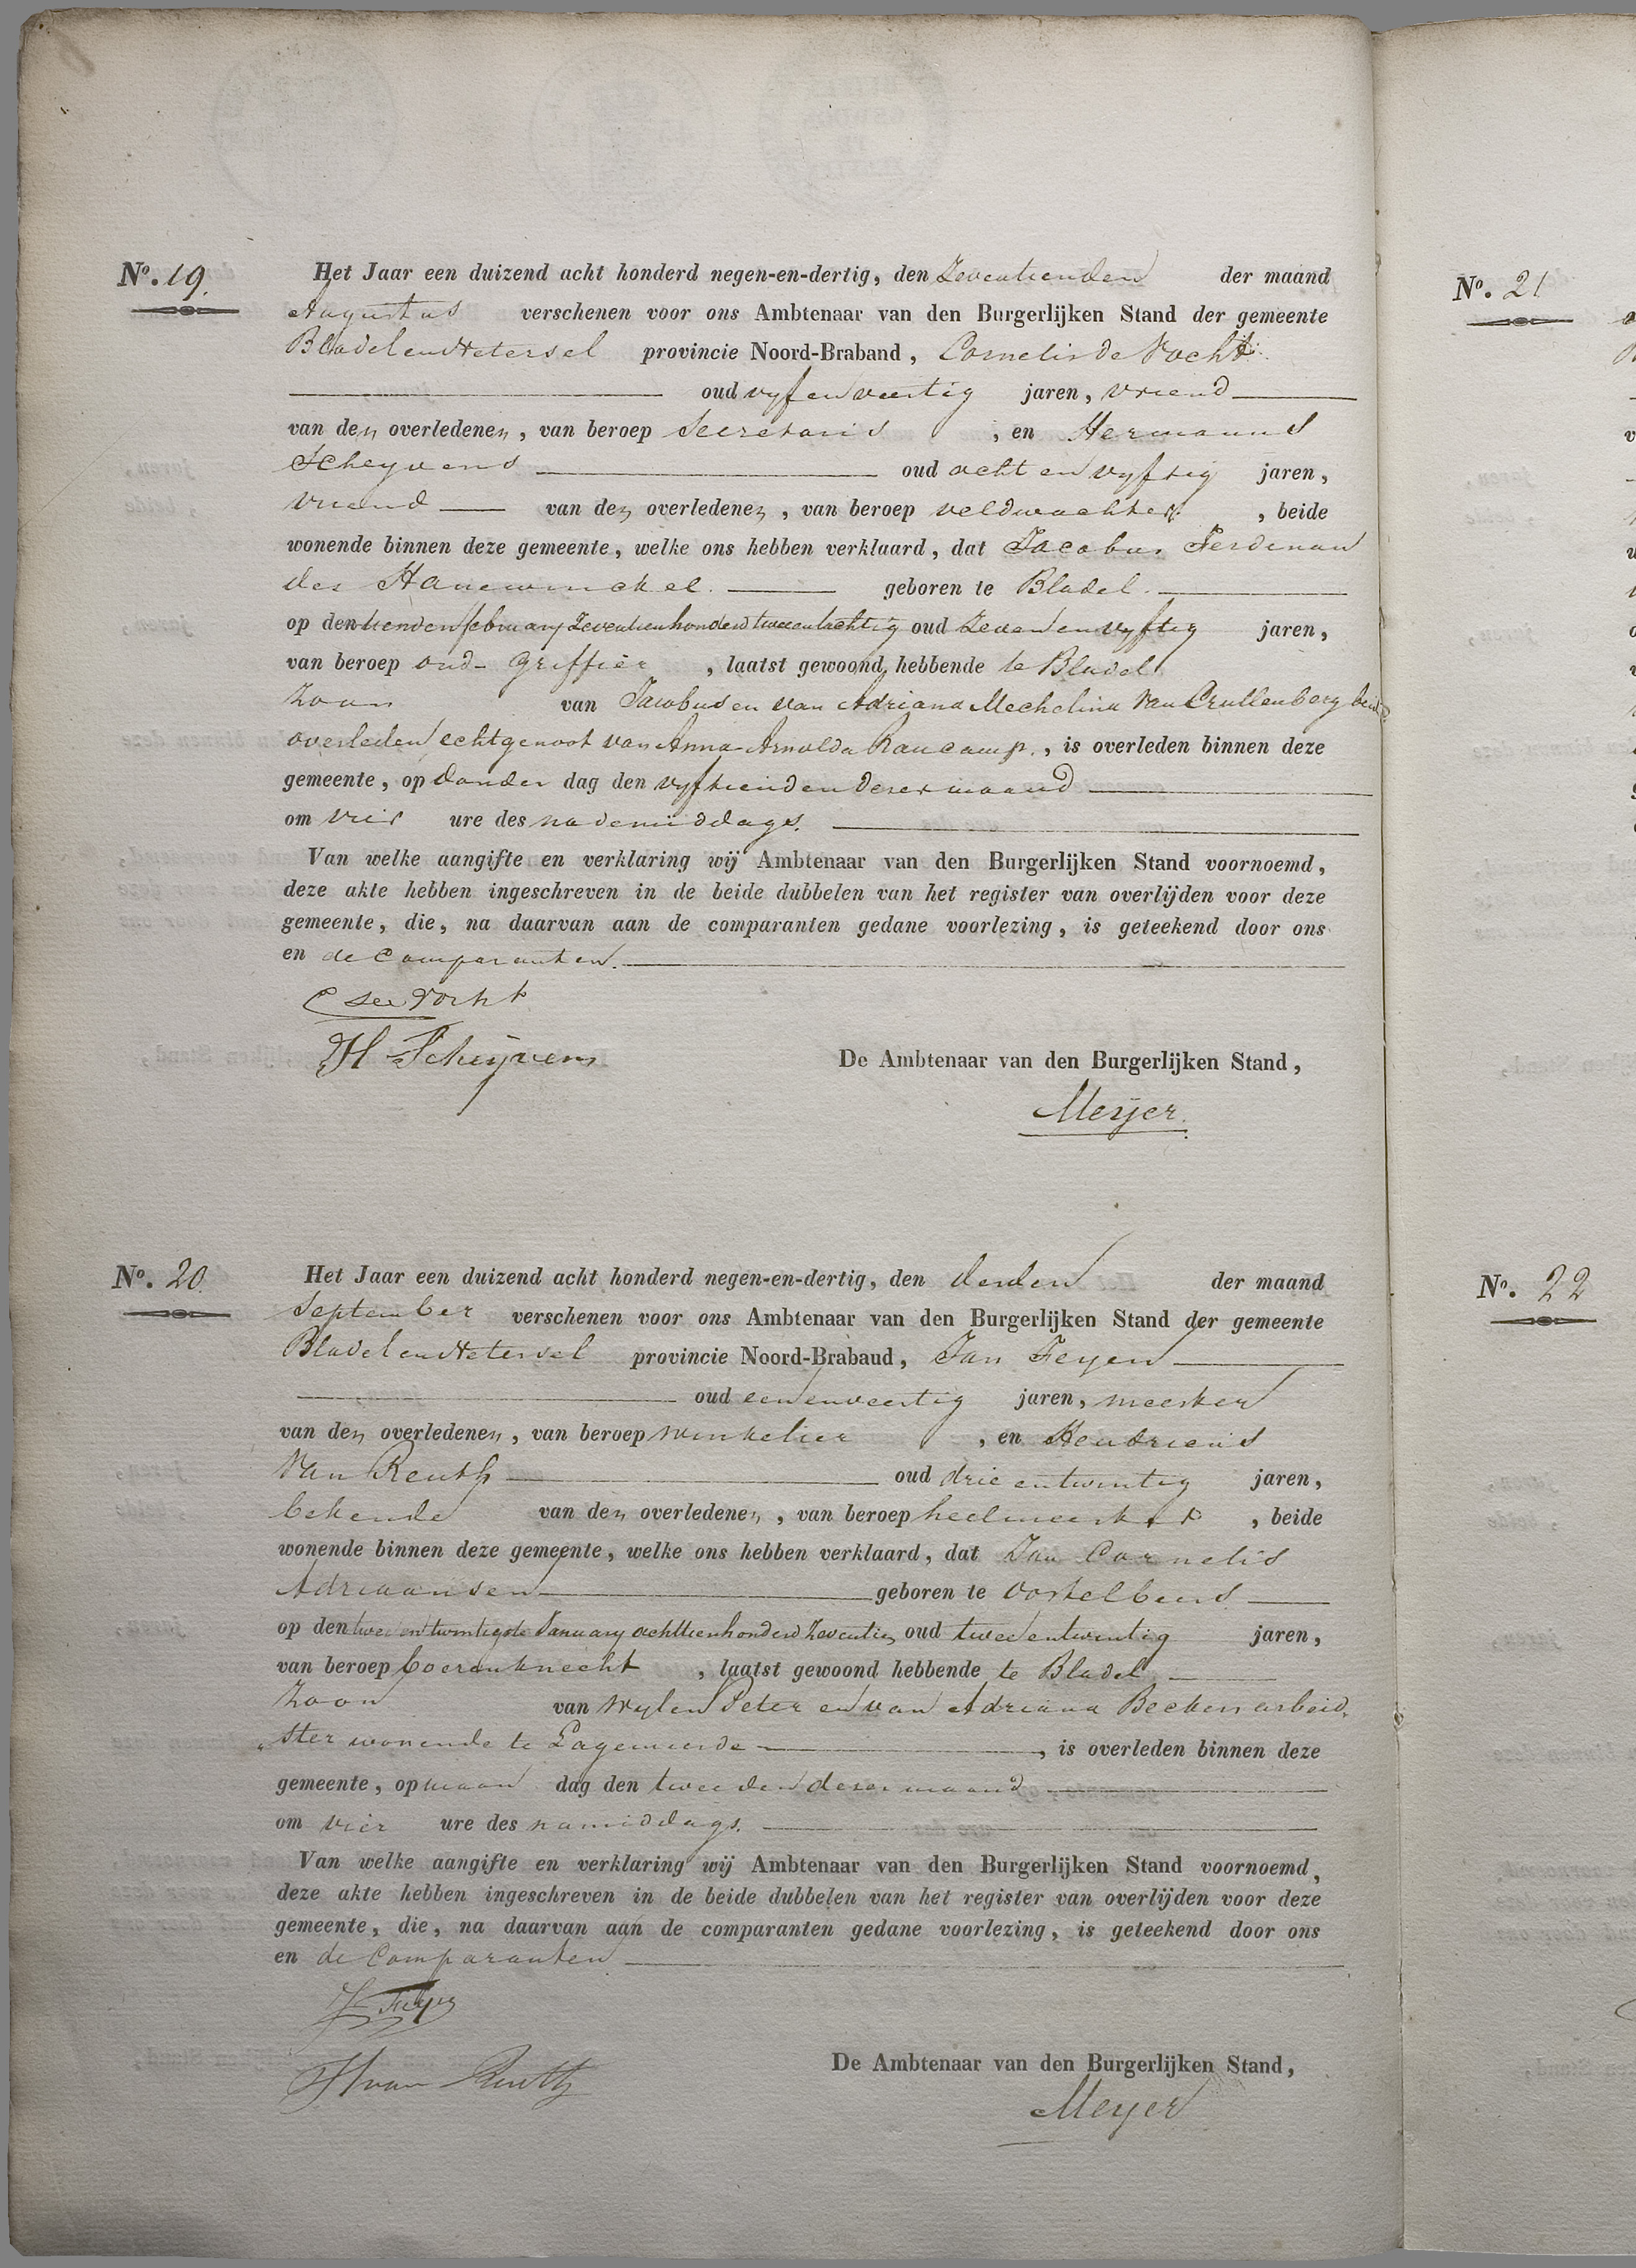 Nº. 19.
Het Jaar een duizend acht honderd negen-en-dertig, den Zeventienden der maand
Augustus verschenen voor ons Ambtenaar van den Burgerlijken Stand der gemeente
Bladel en Netersel provincie Noord-Braband, Cornelis de Vocht
oud vyf en veertig jaren, vriend
van den overledenen, van beroep Secretaris, en Hermanus
Scheyvens oud acht en vyftig jaren,
vriend van den overledenen, van beroep veldwachter, beide
wonende binnen deze gemeente, welke ons hebben verklaard, dat Jacobus Ferdenan
des Hanewinckel. geboren te Bladel.
op den tienden february Zeventienhonderd twee en tachtig oud Zeven en vyftig jaren,
van beroep oud-Griffier, laatst gewoond hebbende te Bladel
Zoon van Jacobus en van Adriana Mechelina Van Crullenberg beide
overleden echtgenoot van Anna Arnolda Raucamp., is overleden binnen deze
gemeente, op donder dag den vyftienden dezer maand
om vier ure des nademiddags.
Van welke aangifte en verklaring wij Ambtenaar van den Burgerlijken Stand voornoemd,
deze akte hebben ingeschreven in de beide dubbelen van het register van overlijden voor deze
gemeente, die, na daarvan aan de comparanten gedane voorlezing, is geteekend door ons
en de Comparanten.
C de Vocht
H Scheijvens
De Ambtenaar van den Burgerlijken Stand,
Meijer.
Nº. 20.
Het Jaar een duizend acht honderd negen-en-dertig, den derden der maand
September verschenen voor ons Ambtenaar van den Burgerlijken Stand der gemeente
Bladel en Netersel provincie Noord-Brabaud, Jan Feyen
oud een en veertig jaren, meester
van den overledenen, van beroep winkelier, en Hendricus
Van Reuth oud drie en twintig jaren,
bekende van den overledenen, van beroep heelmeester, beide
wonende binnen deze gemeente, welke ons hebben verklaard, dat Jan Cornelis
Adriaansen geboren te Oostelbeers
op den twee en twintigste January achttienhonderd Zeventien oud twee en twintig jaren,
van beroep boerenknecht, laatst gewoond hebbende te Bladel
Zoon van wylen Peter en van Adriana Beekers arbeid,
„ster wonende te Lagemierde, is overleden binnen deze
gemeente, op maan dag den tweeden dezer maand
om vier ure des namiddags.
Van welke aangifte en verklaring wij Ambtenaar van den Burgerlijken Stand voornoemd,
deze akte hebben ingeschreven in de beide dubbelen van het register van overlijden voor deze
gemeente, die, na daarvan aan de comparanten gedane voorlezing, is geteekend door ons
en de Comparanten
J Feyen
H van Reuth
De Ambtenaar van den Burgerlijken Stand,
Meyer
Nº. 21
Nº. 22